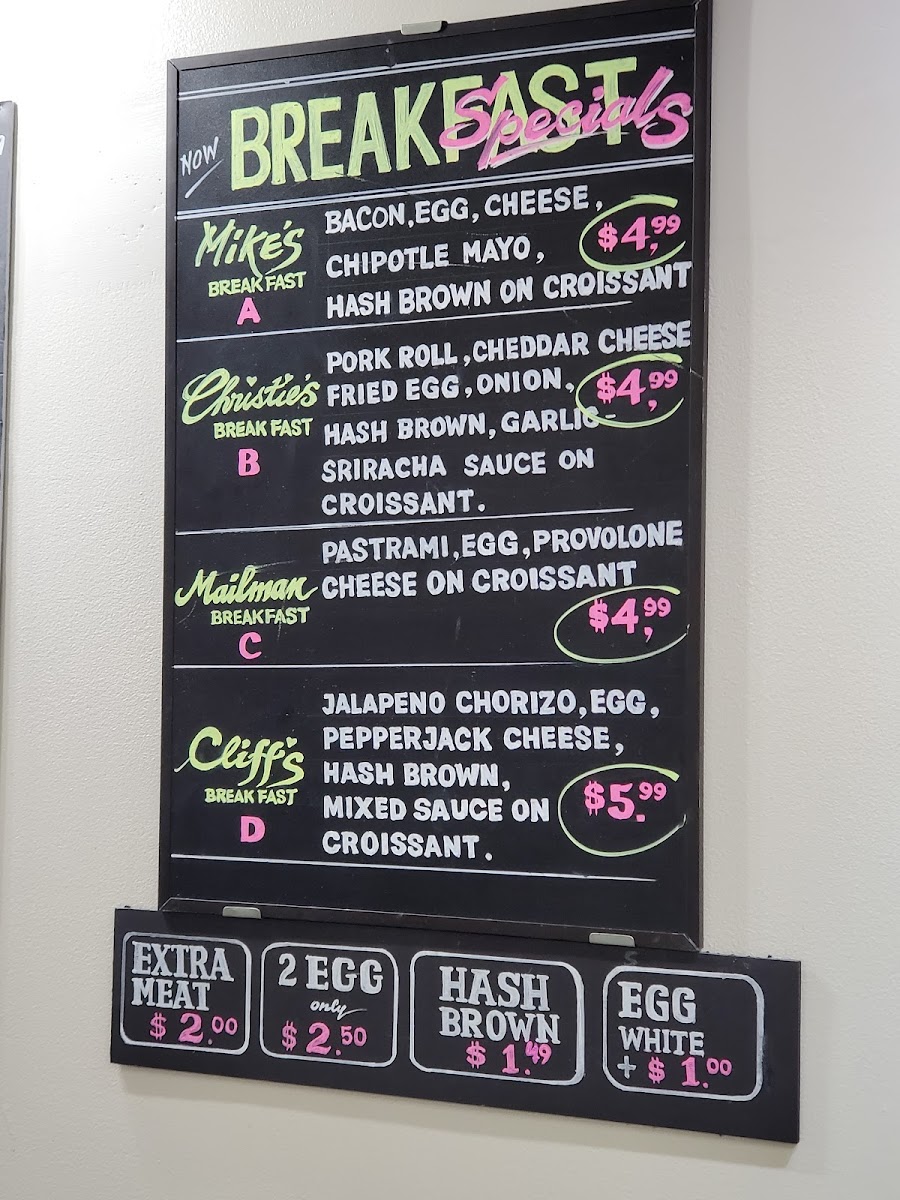 NOW BREAKFAST Specials
Mike's
BREAKFAST
A
BACON, EGG, CHEESE,
CHIPOTLE MAYO,
HASH BROWN ON CROISSANT
$4,99
Christie's
BREAKFAST
B
PORK ROLL, CHEDDAR CHEESE
FRIED EGG, ONION,
HASH BROWN, GARLIC-
SRIRACHA SAUCE ON
CROISSANT.
$4,99
Mailman
BREAKFAST
C
PASTRAMI, EGG, PROVOLONE
CHEESE ON CROISSANT
$4,99
Cliff's
BREAKFAST
D
JALAPENO CHORIZO, EGG,
PEPPERJACK CHEESE,
HASH BROWN,
MIXED SAUCE ON
CROISSANT.
$5.99
EXTRA
MEAT
$2.00
2 EGG
only
$2.50
HASH
BROWN
$1.49
EGG
WHITE
+ $1.00